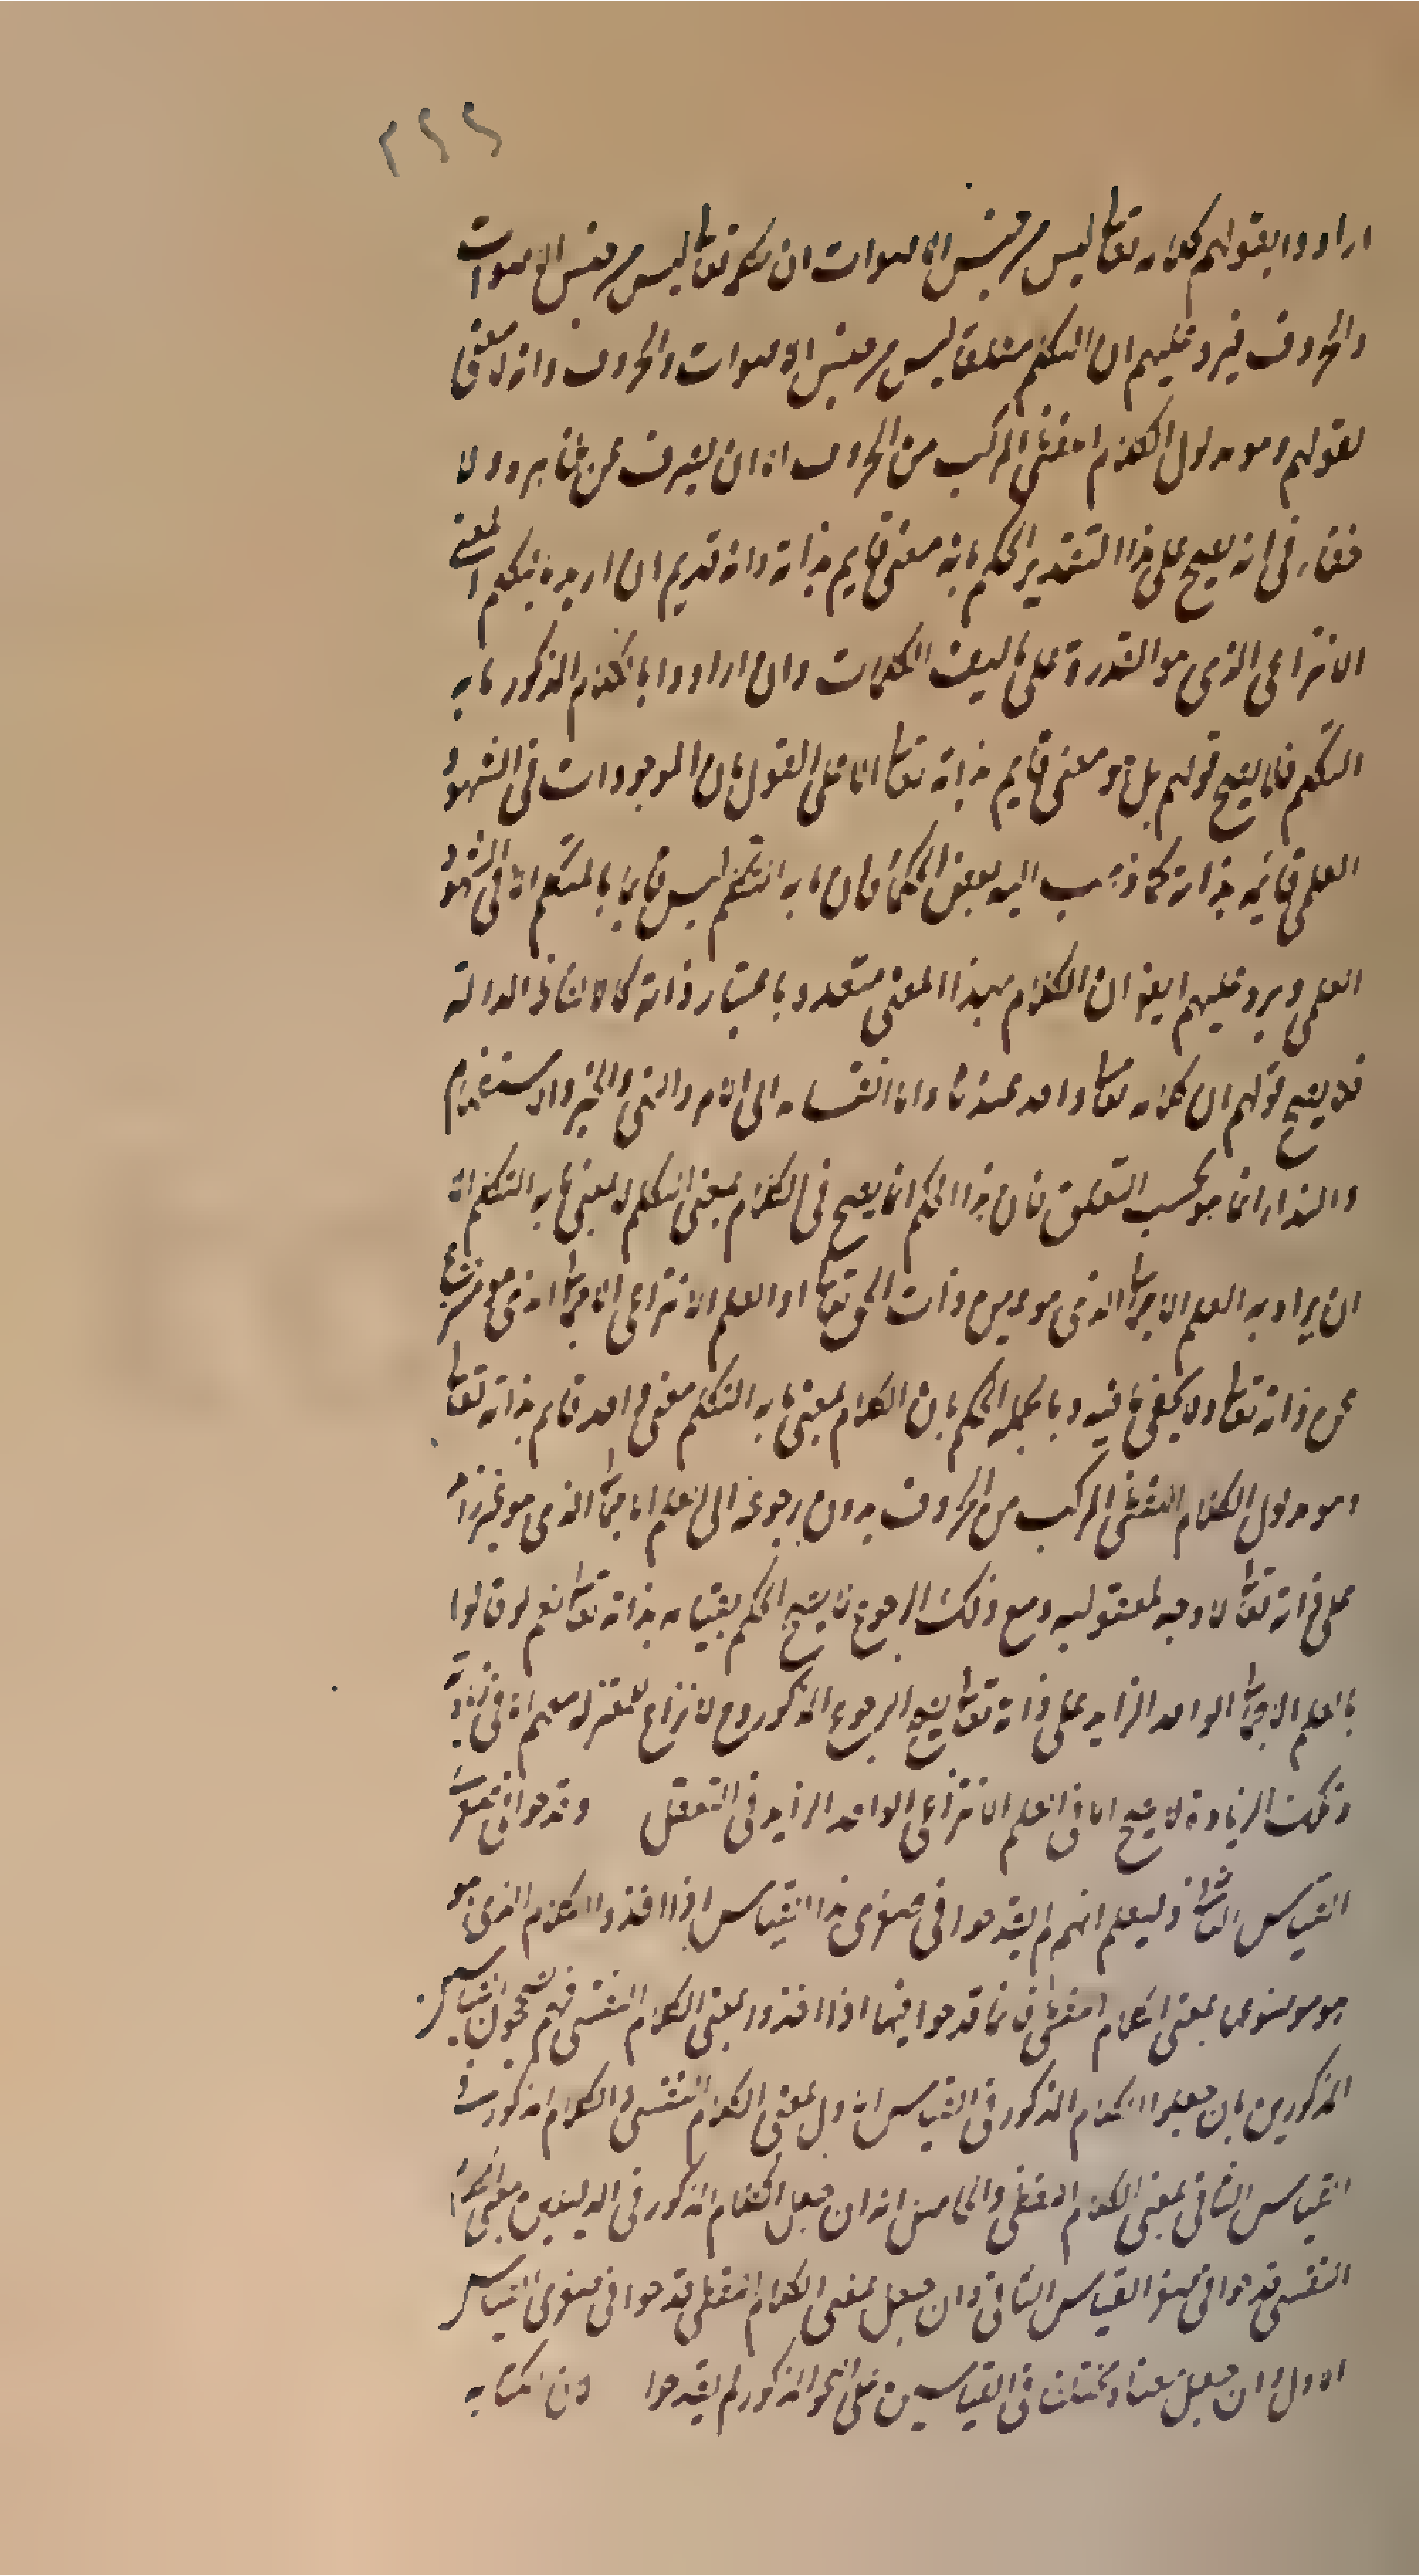 ٢٢٢
ارادوا بقولهم كلامه تعالى ليس من جنس الاصوات ان تكلمه تعالى ليس من جنس الاصوات
والحروف فيرد عليهم ان التكلم مطلقا ليس من جنس الاصوات والحروف وانه لا معنى
لقولهم وهو مدلول الكلام اللفظي المركب من الحروف الا ان يصرف عن ظاهره ولا
خفاء في انه يصح على هذا التقدير الحكم بانه معنى قايم بذاته وانه قديم ان اريد بالتكلم المعنى
الانتزاعي الذي هو القدرة على تاليف الكلمات وان ارادوا بالكلام المذكور ما به
التكلم فلا يصح قولهم بل هو معنى قايم بذاته تعالى الا على القول بان الموجودات في الشهود
العلمي قائمة بذاته كما ذهب اليه بعض الحكماء فان ما به التكلم ليس قايما بالمتكلم الا في الشهود
العلمي ويرد عليهم ايضا ان الكلام بهذا المعنى متعدد باعتبار ذاته كالالفاظ الدالة
فلا يصح قولهم ان كلامه تعالى واحد عندنا واما انقسامه الى الامر والنهي والخبر والاستفهام
والنداء انما هو بحسب التعلق فان هذا الحكم انما يصح في الكلام بمعنى التكلم لا بمعنى ما به التكلم الا
ان يراد به العلم الاجمالي الذي هو عين ذات الحق تعالى او العلم الانتزاعي الاجمالي الذي هو منتزع
عن ذاته تعالى ولا يخفى ما فيه وبالجملة الحكم بان الكلام بمعنى ما به التكلم معنى واحد قايم بذاته تعالى
وهو مدلول الكلام اللفظي المركب من الحروف بدون رجوعه الى العلم الاجمالي الذي هو غير زائد
على ذاته تعالى لا وجه لمعقوليه ومع ذلك الرجوع لا يصح الحكم بقيامه بذاته تعالى نعم لو قالوا
بالعلم الاجمالي الواحد الزايد على ذاته تعالى يصح الرجوع المذكور وح لا نزاع للمعتزلة معهم الا في زيادته
وتلك الزيادة لا يصح الا في العلم الانتزاعي الواحد الزايد في التعقل وقدحوا في صغرى
القياس الثاني وليعلم انهم لم يقدحوا في صغرى هذا القياس اذا اخذوا الكلام الذي هو
هو موضوعها بمعنى الكلام اللفظي فانما قدحوا فيها اذا اخذوا بمعنى الكلام النفسي فهم يصححون القياسين
المذكورين بان جعلوا الكلام المذكور في القياس الاول بمعنى الكلام النفسي والكلام المذكور في
القياس الثاني بمعنى الكلام اللفظي والحاصل انه ان جعل الكلام المذكور في الدليلين بمعنى الكلام
النفسي قدحوا في صغرى القياس الثاني وان جعل بمعنى الكلام اللفظي قدحوا في صغرى القياس
الاول وان جعل معناه مختلفا في القياسين على النحو المذكور لم يقدحوا